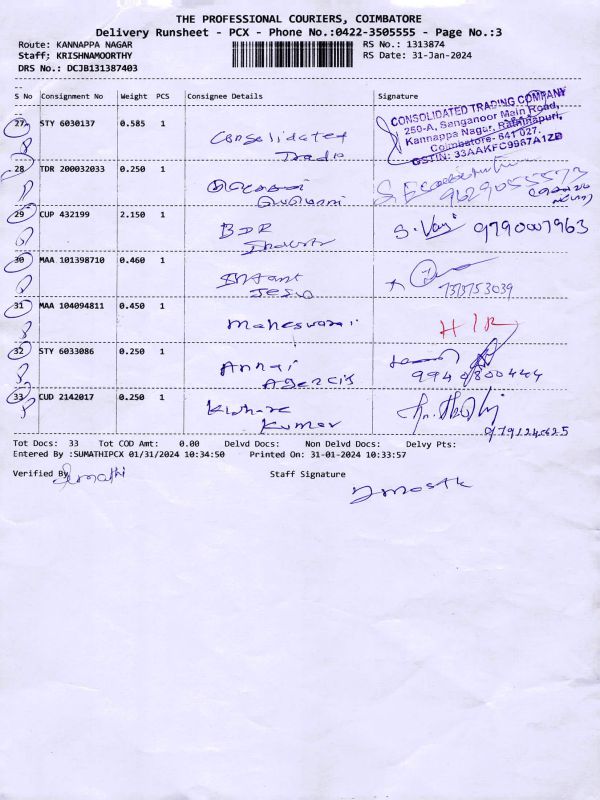 THE PROFESSIONAL COURIERS, COIMBATORE
Delivery Runsheet - PCX - Phone No.:0422-3505555 - Page No.:3
Route: KANNAPPA NAGAR RS No.: 1313874
Staff: KRISHNAMOORTHY RS Date: 31-Jan-2024
DRS No.: DCJB131387403
S No Consignment No Weight PCS Consignee Details Signature
27 STY 6030137 0.585 1 Consolidated
Tradi
CONSOLIDATED TRADING COMPANY
250-A, Sanganoor Main Road,
Kannappa Nagar, Rathinapuri,
Coimbatore- 641 027.
GSTIN: 33AAKFC9967A1ZB
28 TDR 200032033 0.250 1
9629055573
29 CUP 432199 2.150 1 BDR
S. 9790007963
30 MAA 101398710 0.460 1 Infant
Jesus
31 MAA 104094811 0.450 1 Maheswari HIR
32 STY 6033086 0.250 1 Annai
Agencis
9940800444
33 CUD 2142017 0.250 1 Kishore
Kumar
Tot Docs: 33 Tot COD Amt: 0.00 Delvd Docs: Non Delvd Docs: Delvy Pts:
Entered By :SUMATHIPCX 01/31/2024 10:34:50 Printed On: 31-01-2024 10:33:57
Verified By Sumathi Staff Signature